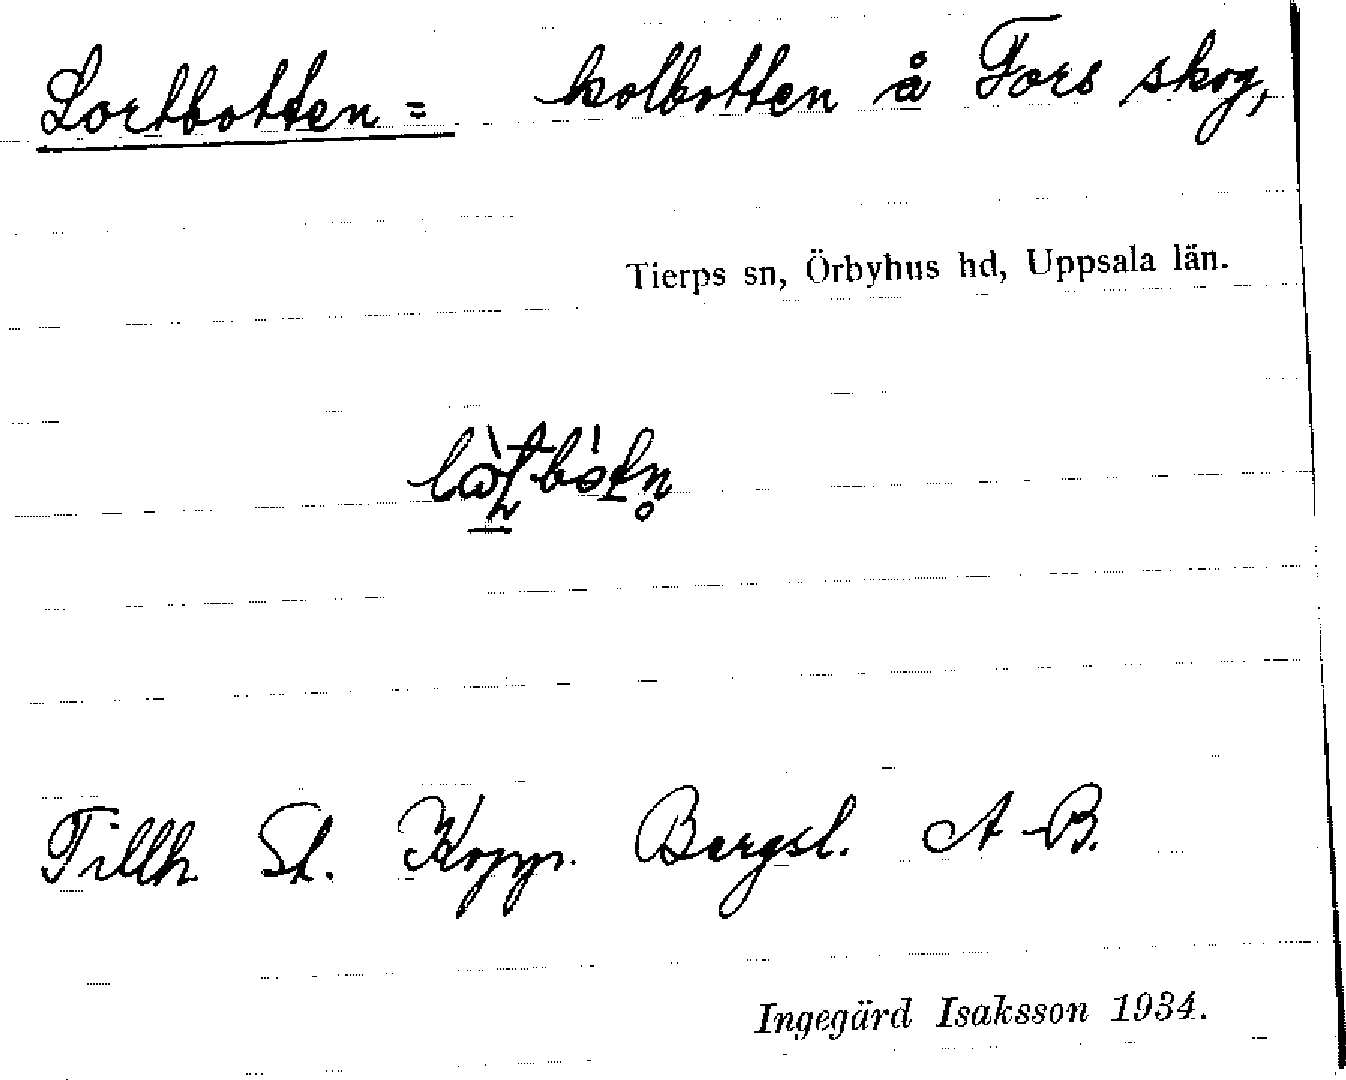 Lortbotten = kolbotten å Fors skog,
Tierps sn, Örbyhus hd, Uppsala län.
Tillh. St. Kopp. Bergsl. A-B.
Ingegärd Isaksson 1934.